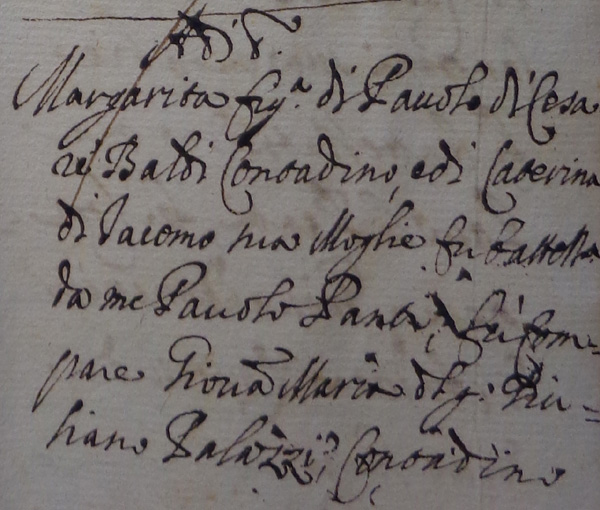 Adi d.º
Margarita fig.ª di Pauolo di Cesa
re Baldi Contadino, e di Caterina
di Iacomo sua Moglie fu batt.ta
da me Pauolo Panti, fu Com=
pare Giouã Maria del q. Giu=
liano Palazzi, Contadino